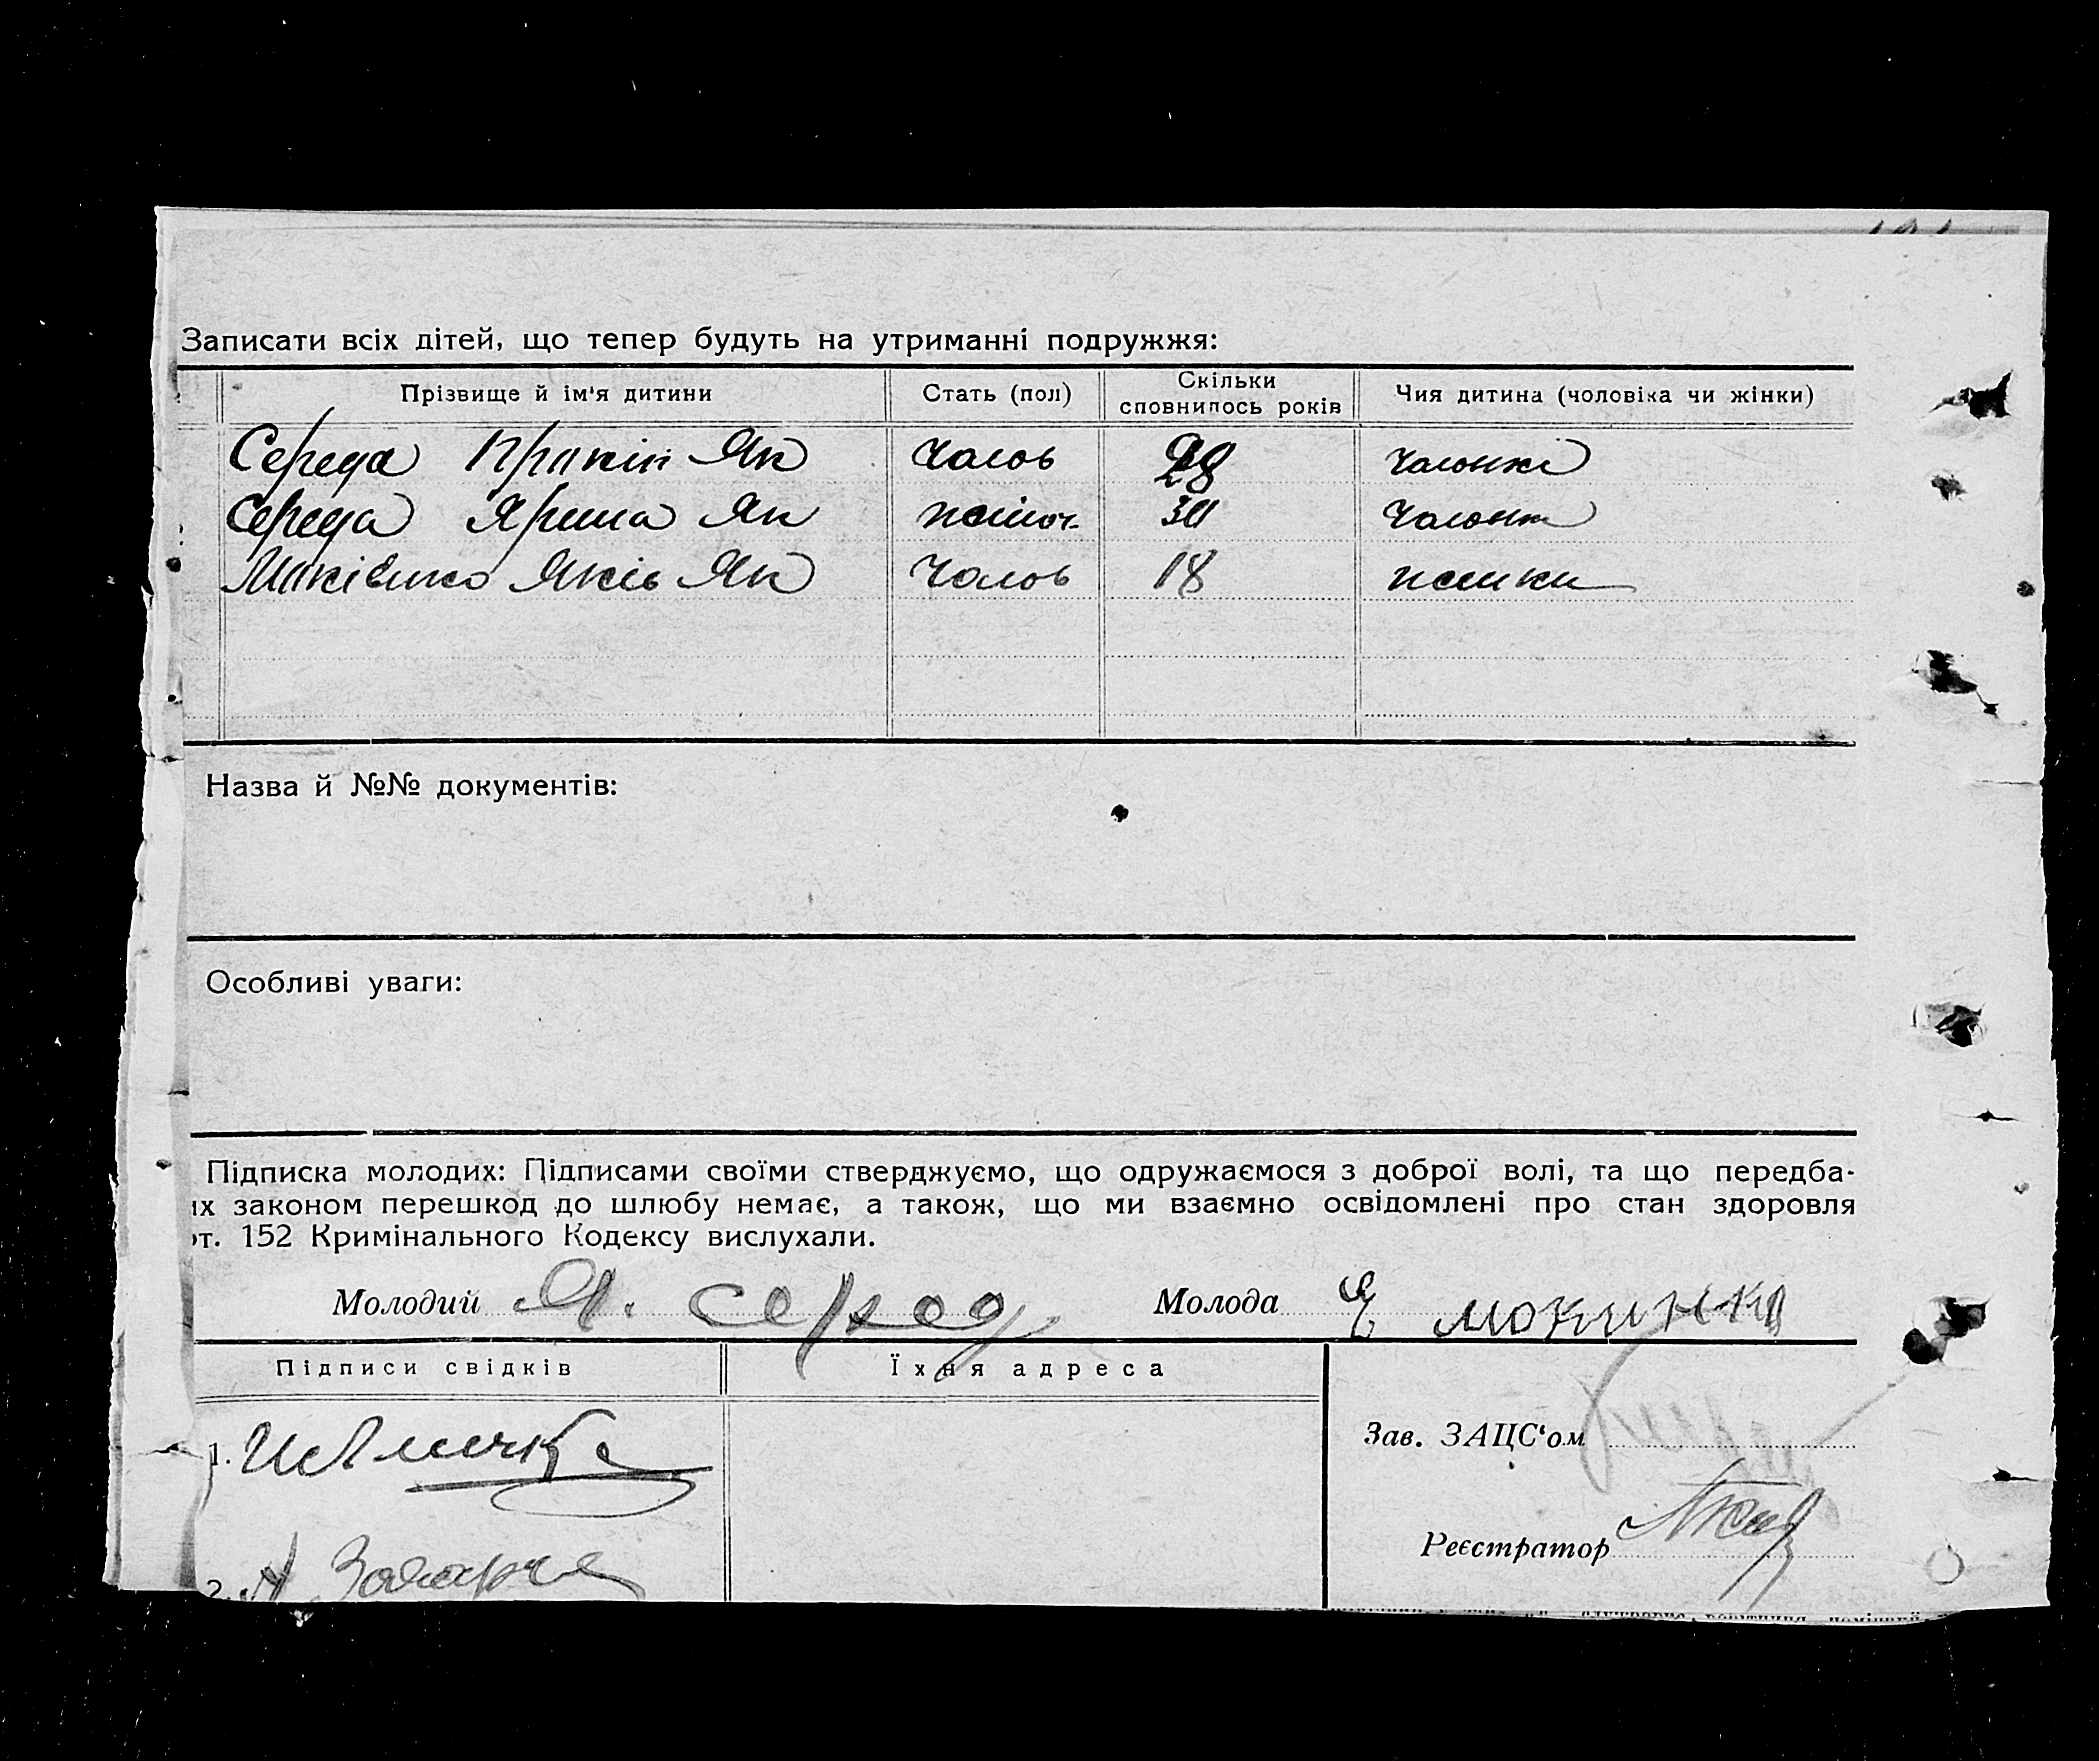 Записати всіх дітей, що тепер будуть на утриманні подружжя:
Прізвище й ім'я дитини Стать (пол) Скільки сповнилось років Чия дитина (чоловіка чи жінки)
Середа Пракіп Як Чолов 28
Середа Ярина Як 30
Яків Як Чолов 18
Назва й №№ документів:
Особливі уваги:
Підписка молодих: Підписами своїми стверджуємо, що одружаємося з доброї волі, та що передба-
их законом перешкод до шлюбу немає, а також, що ми взаємно освідомлені про стан здоровля
от. 152 Кримінального Кодексу вислухали.
Молодий Я. Серед Молода Є
Підписи свідків Їхня адреса
1.
Зав. ЗАЦС'ом
Реєстратор
2.